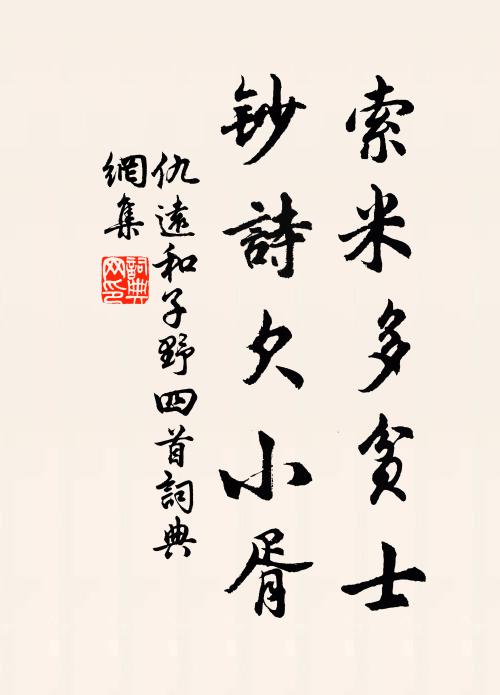 索米多貧士
鈔詩欠小胥
仇遠和子野四首詞典
網集
詞典
网印